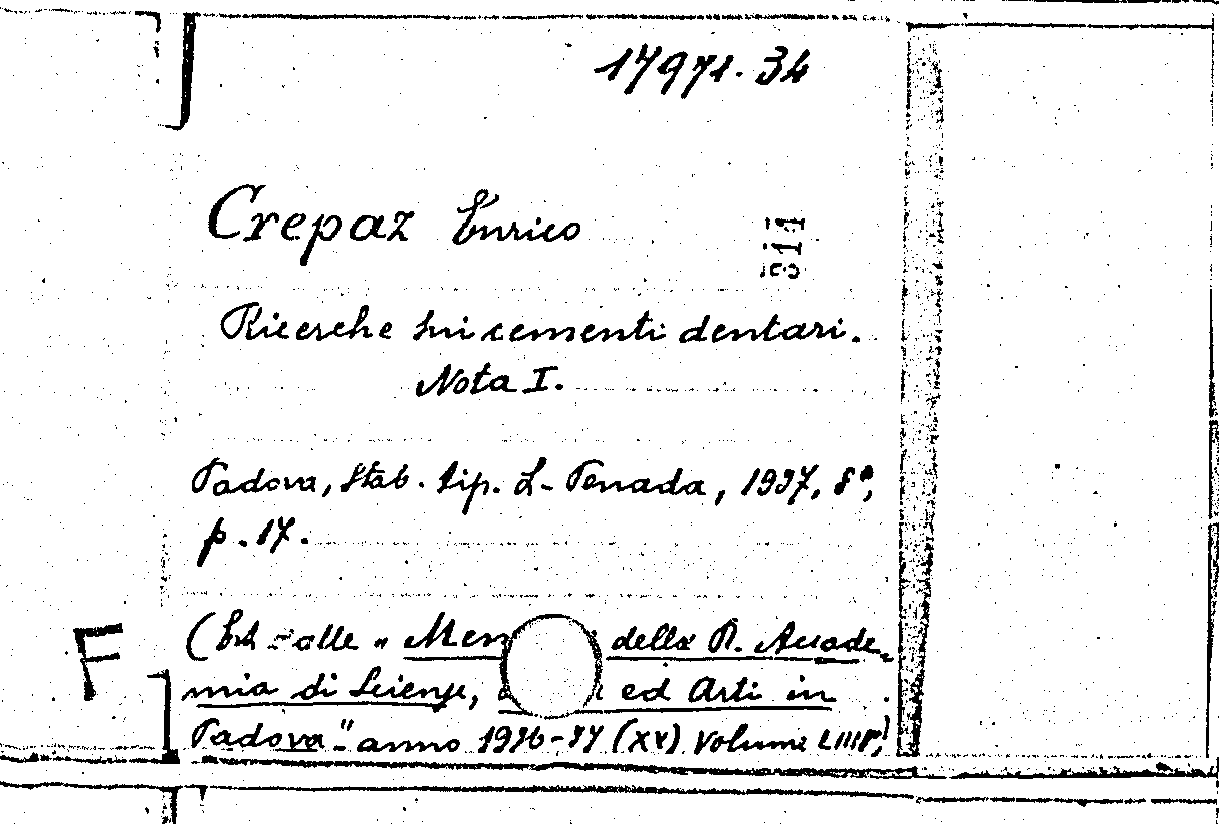 17971.34
Crepaz Enrico
311
Ricerche sui cementi dentari.
Nota I.
Padova, Stab. tip. L. Penada, 1937, 8°,
p. 17.
F
(Est. dalle "Mem della R. Accade-
mia di Scienze, ed Arti in
Padova" anno 1936-37 (XV) Volume LIII°)